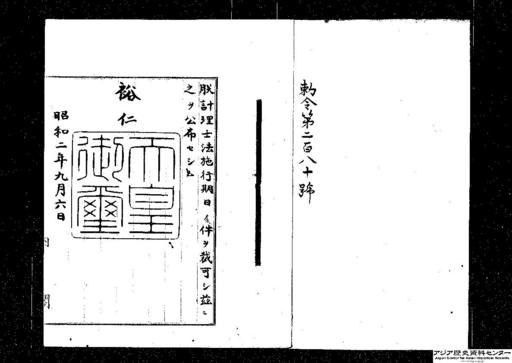 勅令第二百八十號
朕計理士法施行期日ノ件ヲ裁可シ茲ニ
之ヲ公布セシム
裕仁
天皇
御璽
昭和二年九月六日
アジア歴史資料センター
Japan Center for Asian Historical Records